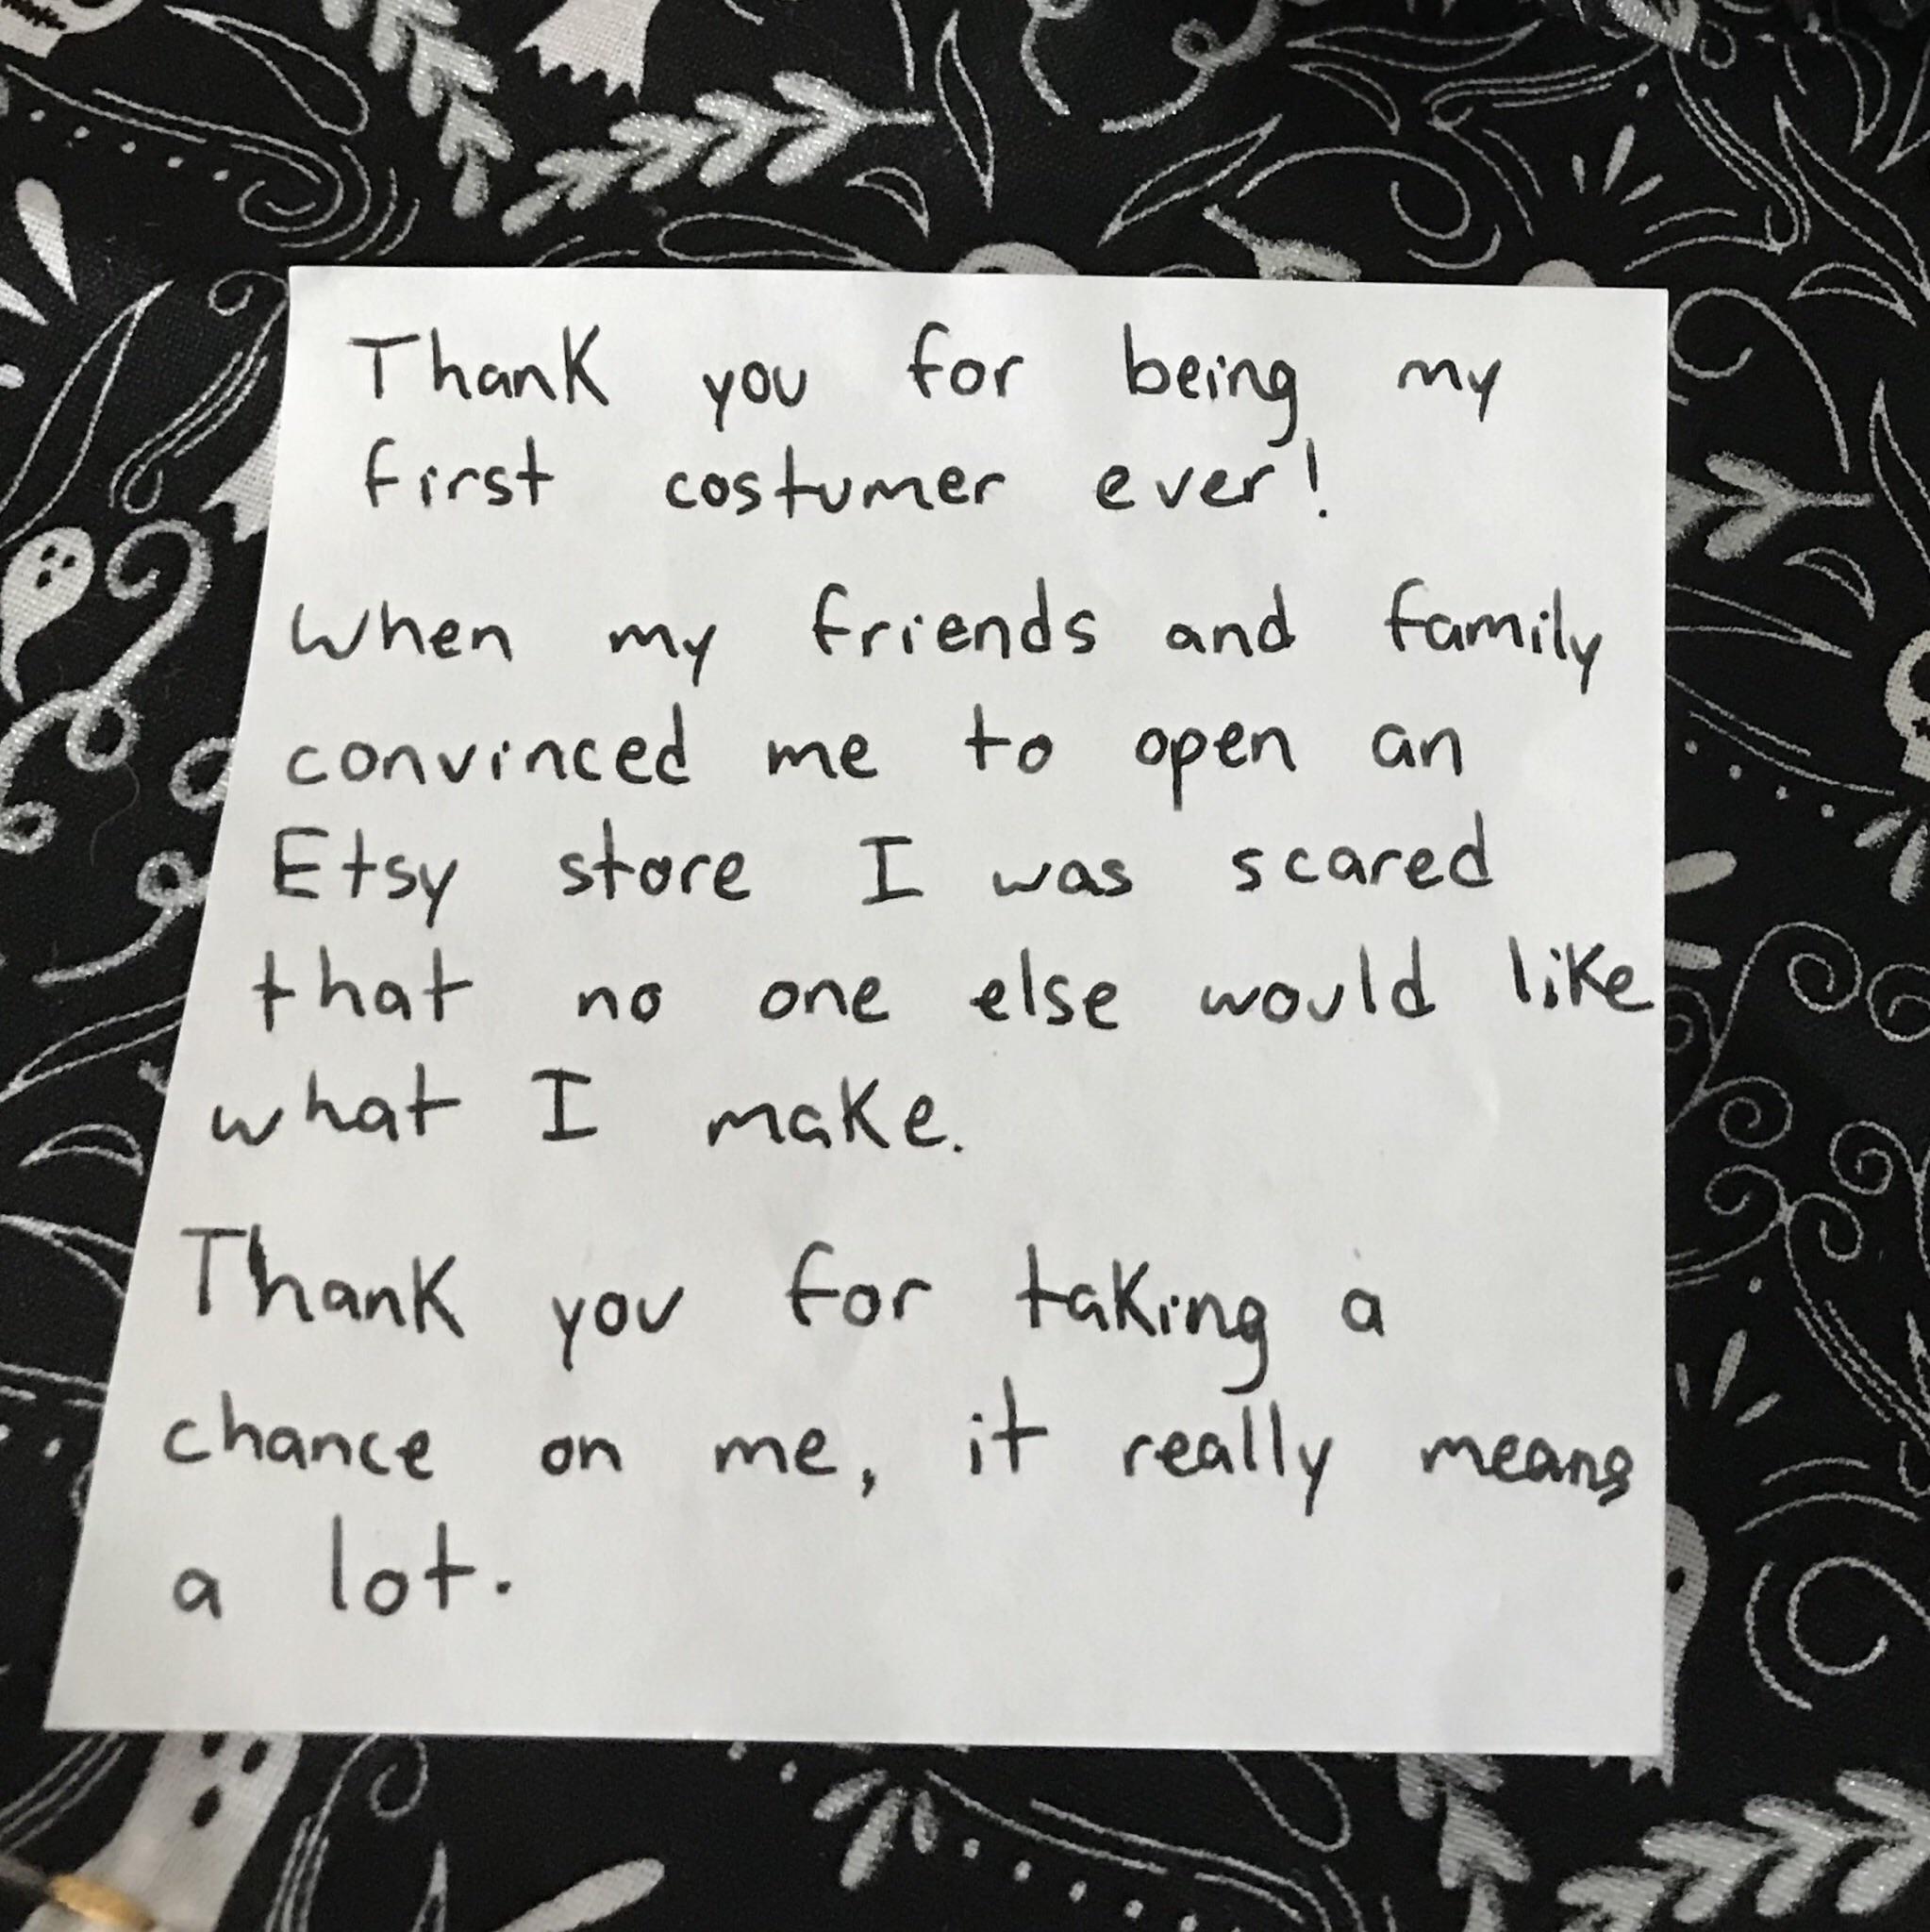 Thank you for being my
first costumer ever!
When my friends and family
convinced me to open an
Etsy store I was scared
that no one else would like
what I make.
Thank you for taking a
chance on me, it really means
a lot.